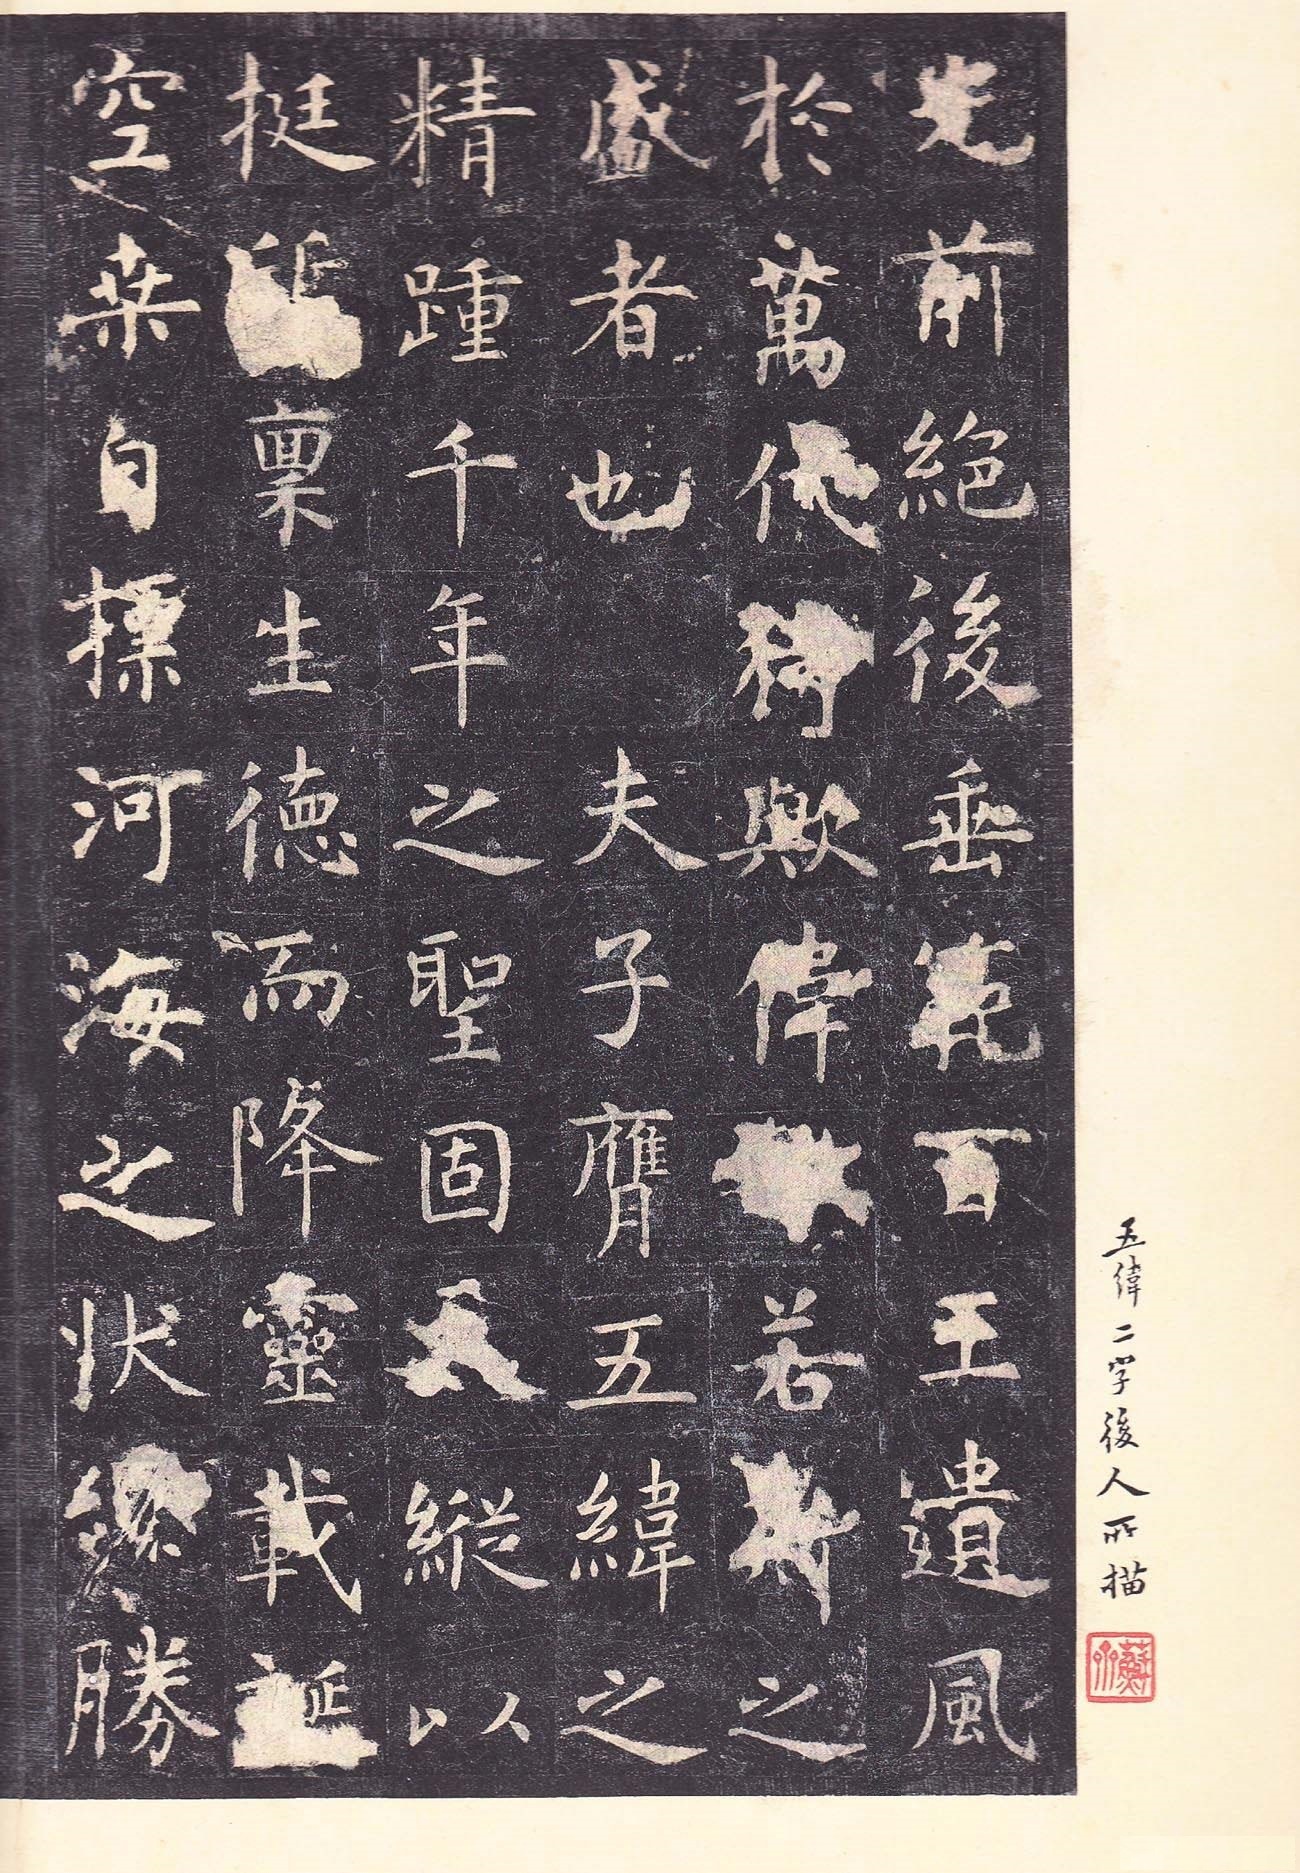 五緯二字後人所描
光前絕後垂範百王遺風
於萬代猗歟偉若斯之
盛者也 夫子膺五緯之
精踵千年之聖固天縱以
挺質稟生德而降靈載誕
空桒自標河海之狀纔勝